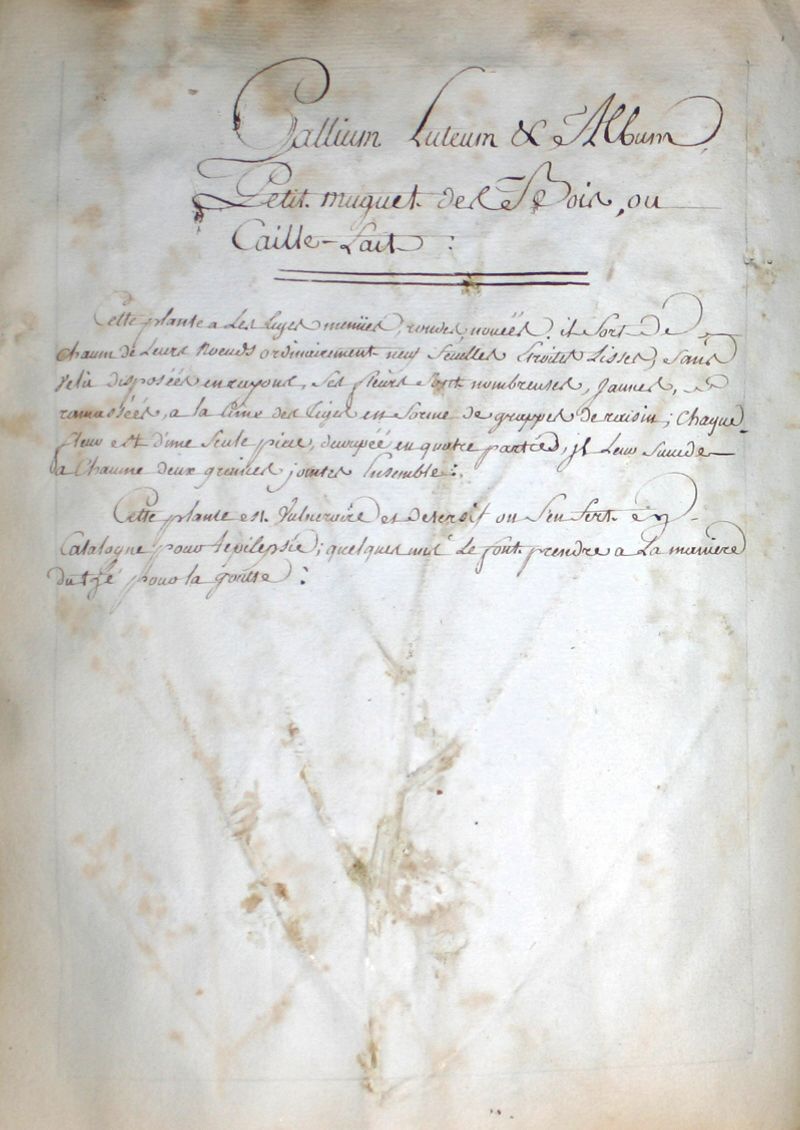 Gallium Luteum & Album,
Petit muguet des Bois, ou
Caille-Lait :
Cette plante a les tiges menües, rondes, nouëes, il sort de
chacun de leurs noeuds ordinairement neuf feuilles Etroites Lisses, sans
disposées en rayons, ses fleurs sont nombreuses, Jaunes, et
ramassées, a la Cime des tiges en forme de grappes de raisin; Chaque
fleur est d'une seule piece, decoupée en quatre parties, il leur succede
a Chacune deux graines jointes Ensemble :
Cette plante est Vulneraire et detersif on s'en sert en
Catalogne pour l'epilepsie; quelques uns le font prendre a la maniere
du thé pour la goutte :